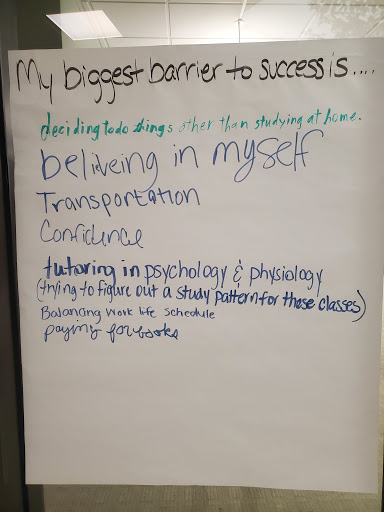 My biggest barrier to success is....
deciding to do things other than studying at home.
beliveing in myself
Transportation
Confidence
tutoring in psychology & physiology
(trying to figure out a study pattern for these classes)
Balancing work life schedule
paying for books